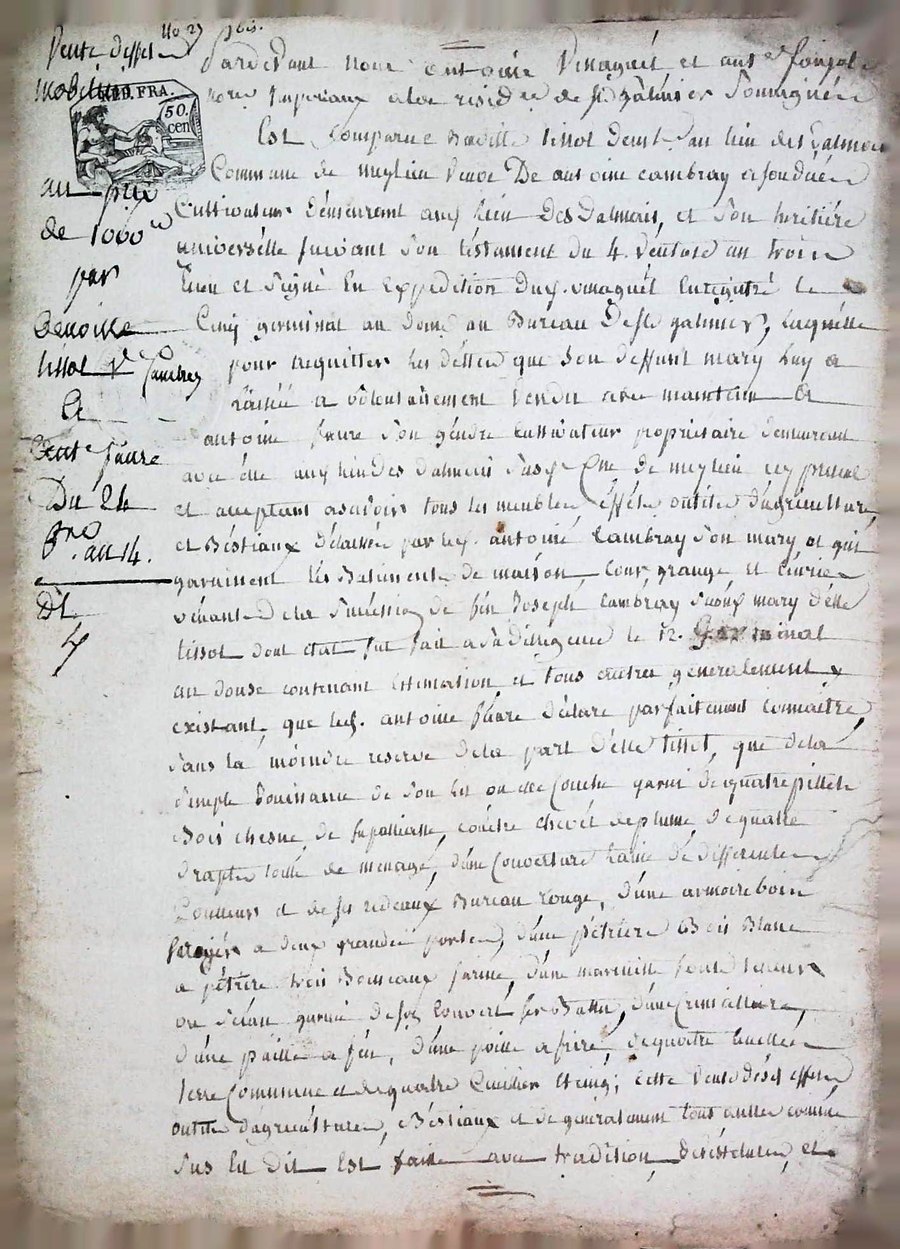 Vente d'effets
mobiliers
RÉP. FRA.
50.
cen
au prix
de 1000
par
Benoitte
tissot Ve Cambray
à
Ante faure
Du 24
fre an 14.
Dt
Pardevant nous antoine Vinagué et
nores Impériaux à la residce de St Galmier Soussignés
Est Comparue tissot demt au lieu des
Commune de meylieu Veuve De antoine cambray
Cultivateur Démeurant auxd lieu Des Dalmais, et Son heritière
universélle suivant Son téstament du 4. Véntose an troize
Reçu et Signé En Expédition Dud. vinagué Enregistré le
Cinq germinal an Douze au Bureau De St galmier, Laquelle
pour acquitter les déttes que Son deffunt mary Luy a
laissé a volontairement Vendu avec maintenue à
antoine faure Son géndre cultivateur proprietaire demeurant
avec élle auxd lieu des dalmais Susd. Cne de meylieu icy présent
et acceptant asavoir tous les meubles Effets outils Dagriculture,
et Béstiaux Délaissés par led. antoine Cambray Son mary et qui
garnissent lés Batiments de maison, Cour, grange et Ecurie
vénant De la Succéssion de feu Joseph Cambray mary d'élle
tissot dont état fut fait a Sa diligence le 12. Germinal
an douse contenant Estimation et tous autres généralement
existant, que led. antoine faure Déclare parfaitement connaitre,
Sans la moindre reserve De la part D'élle tissot, que De la
Simple Jouissance de Son Lit ou élle Couche garni de quatre pilliers
Bois chesne, de Sa paillasse, couètre chevét de plume, de quatre
draps toile de menage, d'une Couverture laine dé differentes
Couleurs et de Ses redeaux Bureau rouge, d'une armoire bois
a deux grandes portes, d'une pétriere Bois Blanc
a pétrire trois Boisseaux farine, d'une marmitte fonte
ou garnie de son Couvert fer Battu, d'une Cremailliere,
d'une paille a feu, D'une poille a frire, de quatre Ecuelles
terre Commune et de quatre Cuillier Etaing; cette Vente désd. effets,
outils dagriculture, Béstiaux et de généralement tout autres comme
Sus Est dit Est faite avec tradition, désistement, et